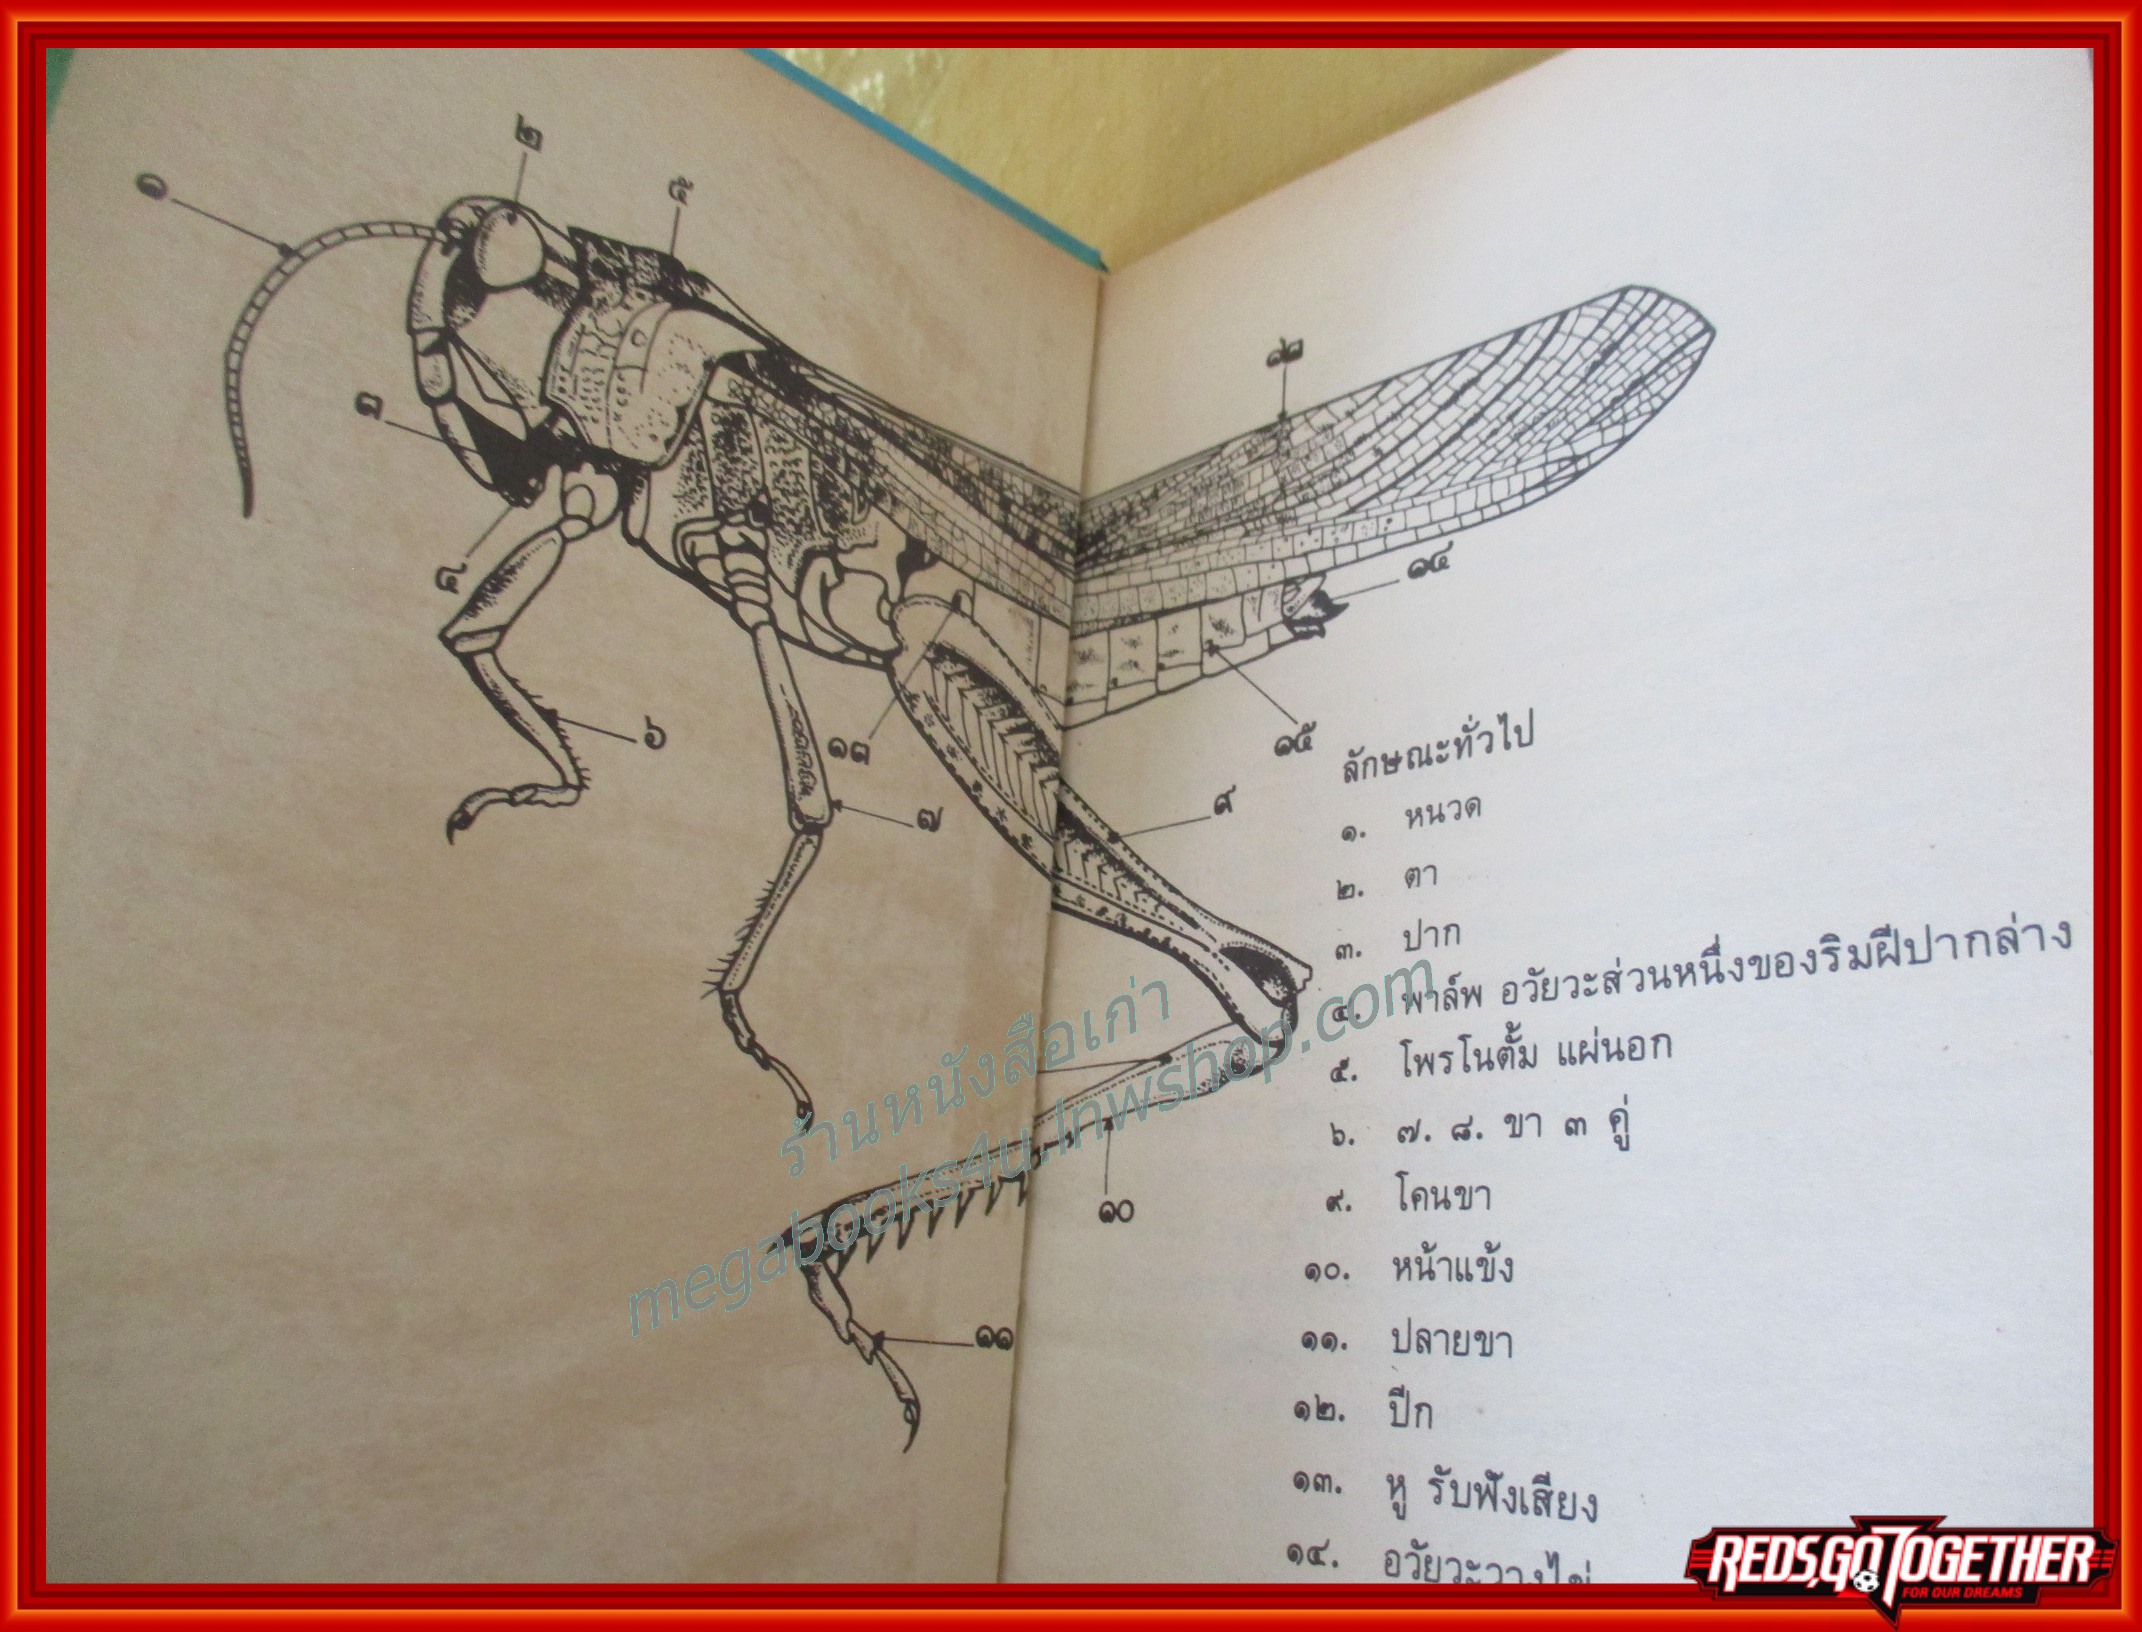 ๑
๒
๕
๓
๔
๖
๗
๑๓
๑๒
๑๔
๑๕
๙
๑๐
๑๑
ลักษณะทั่วไป
๑. หนวด
๒. ตา
๓. ปาก
๔. พาล์พ อวัยวะส่วนหนึ่งของริมฝีปากล่าง
๕. โพรโนตั้ม แผ่นอก
๖. ๗. ๘. ขา ๓ คู่
๙. โคนขา
๑๐. หน้าแข้ง
๑๑. ปลายขา
๑๒. ปีก
๑๓. หู รับฟังเสียง
๑๔. อวัยวะวางไข่
ร้านหนังสือเก่า
megabooks4u.lnwshop.com
REDS,GO TOGETHER
FOR OUR DREAMS